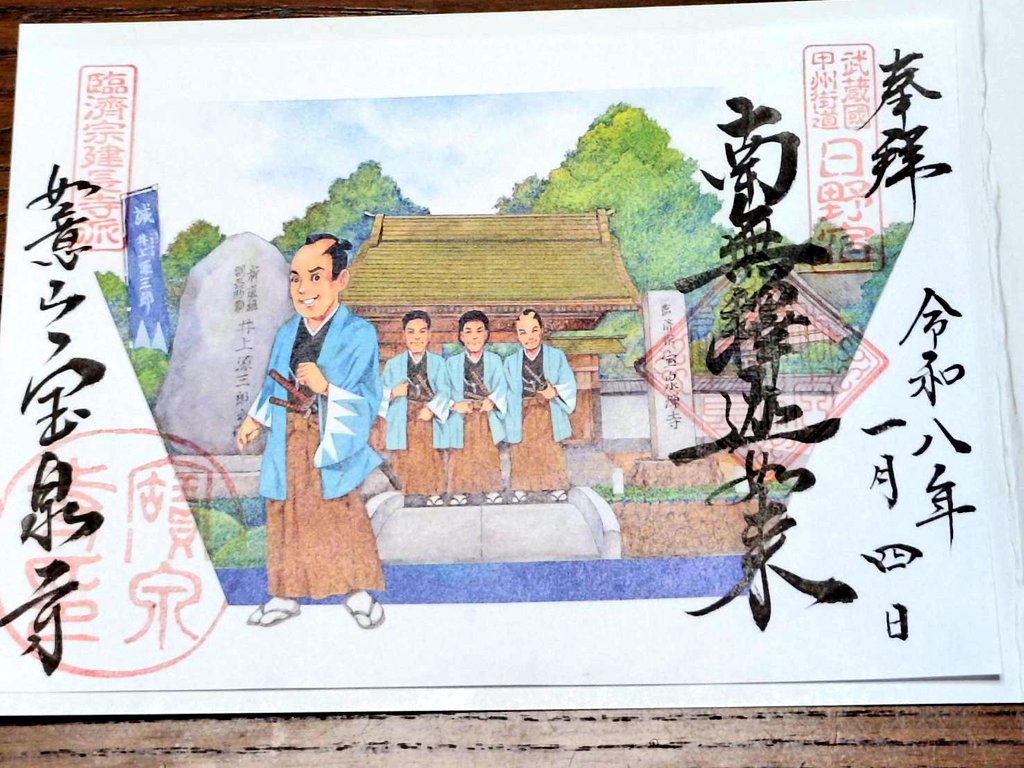 奉拝
令和八年
一月四日
武蔵國
甲州街道
日野宿
南無釋迦如来
臨済宗 宝泉禅寺
新選組
井上源三郎
誠 井上源三郎
臨濟宗建長寺派
如意山 宝泉寺
寳泉